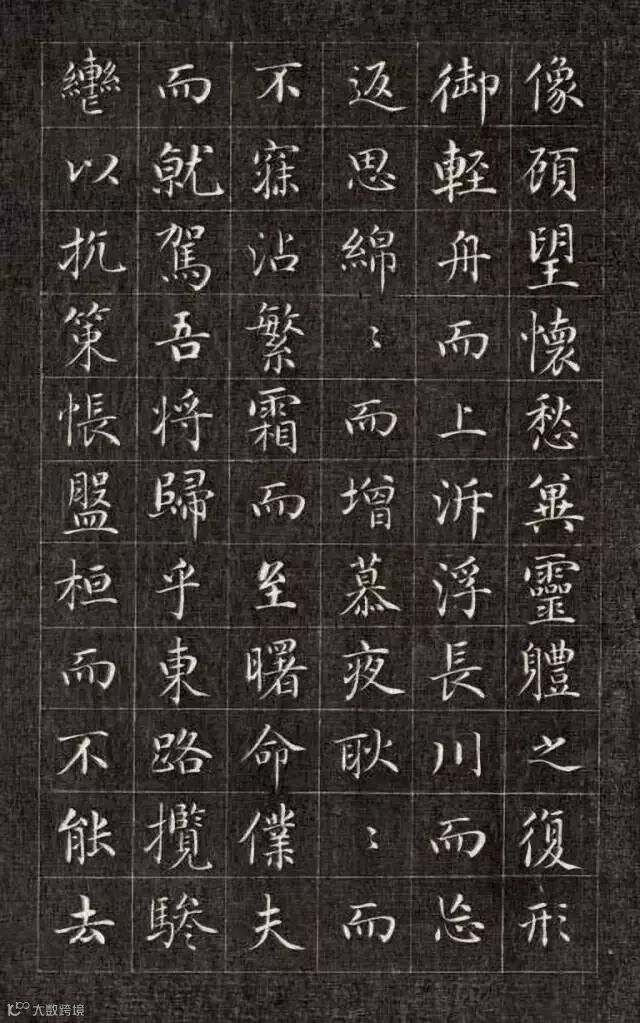 像頋望懷愁兾靈軆之復形
御輊舟而上泝浮長川而忘
返思綿〻而增慕夜耿〻而
不寐沾繁霜而至曙命僕夫
而就駕吾将歸乎東路攬騑
轡以抗策悵盤桓而不能去
大数跨境